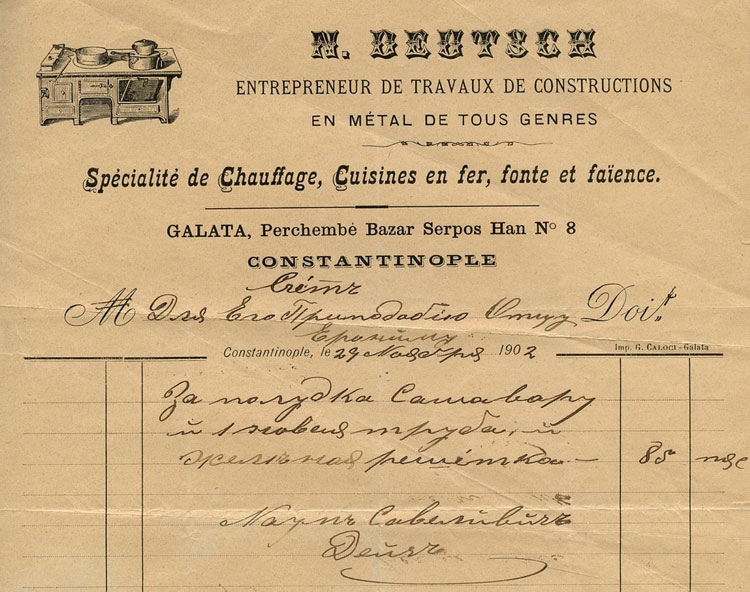 N. DEUTSCH
ENTREPRENEUR DE TRAVAUX DE CONSTRUCTIONS
EN MÉTAL DE TOUS GENRES
Spécialité de Chauffage, Cuisines en fer, fonte et faïence.
GALATA, Perchembé Bazar Serpos Han Nº 8
CONSTANTINOPLE
Счётъ
M Для Его Приподобію Отцу Doit
Constantinople, le 29 Ноября 1902
Imp. G. CALOCI - Galata
За полудка Самавару
и 1 новая труба, и
желѣзная решётка — 85 пяс
Наумъ Савеливичъ
Дейчъ